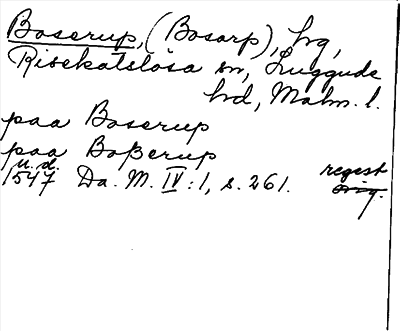 Boserup, (Bosarp), hg,
Risekatslösa sn, Luggude
hd, Malm. l.
paa Boserup
paa Boßerup
u. d.
1547 Da. M. IV:1, s. 261. regest
orig.